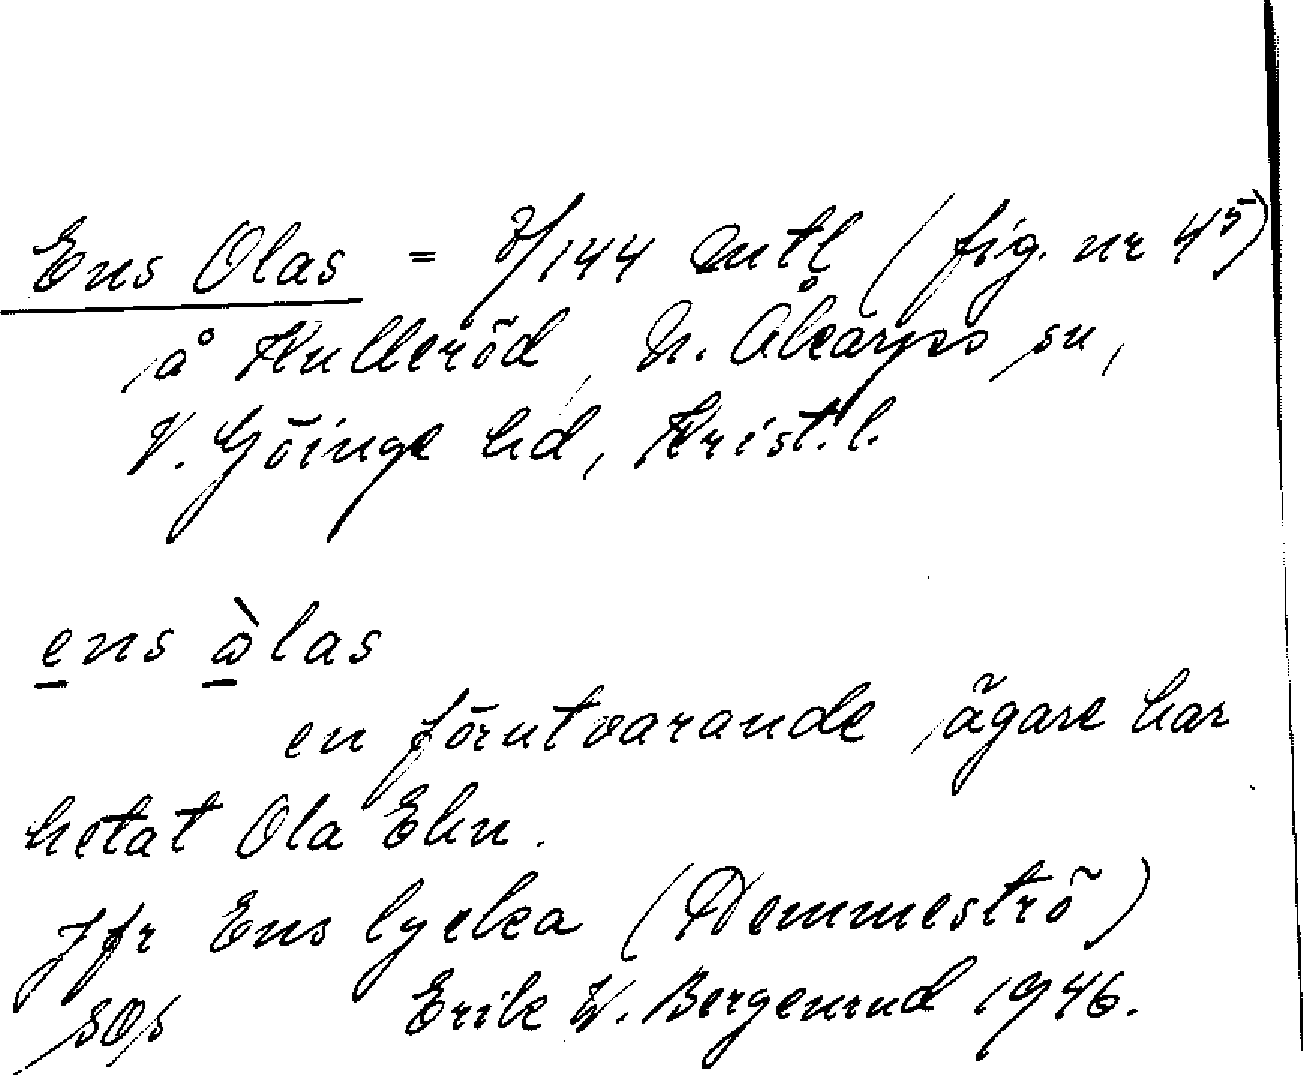 Ens Olas = 7/144 mtl (fig. nr 45)
å Hulleröd, N. Åkarps sn,
V. Göinge hd, Krist. l.
ens àlas
en förutvarande ägare har
hetat Ola Ehn.
Jfr Ens lycka (Demmeströ)
Erik W. Bergenrud 1946.